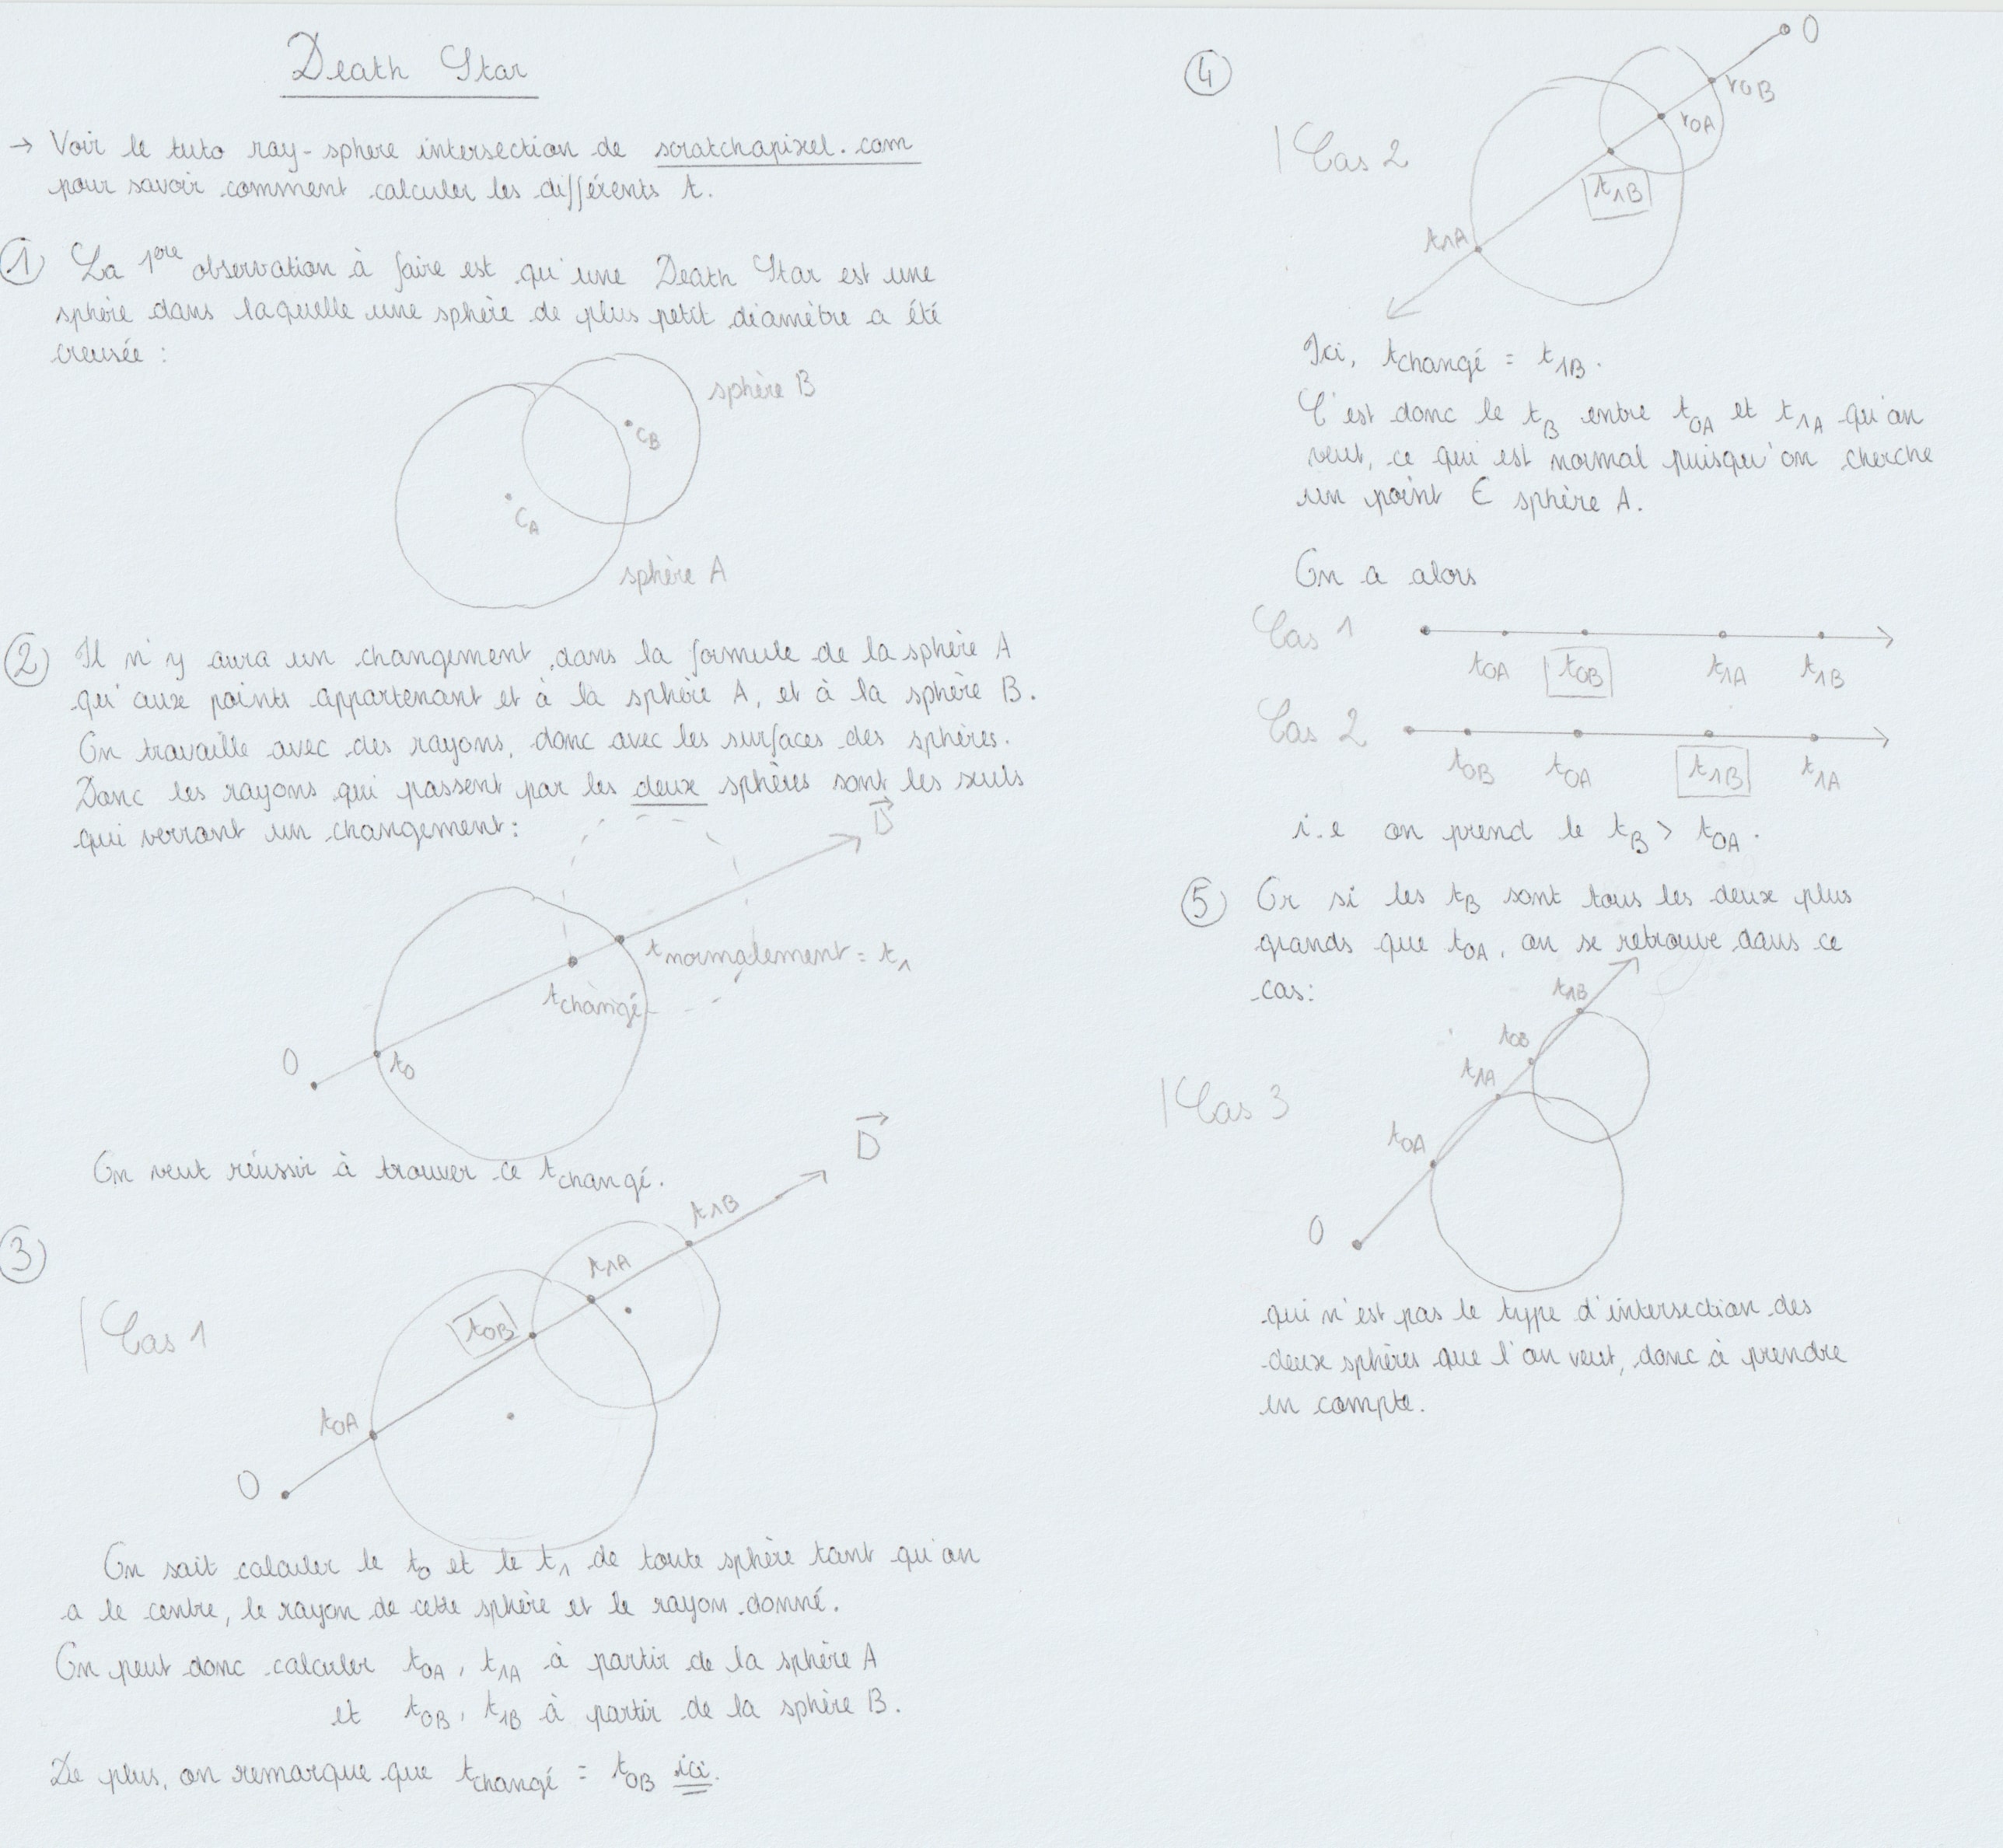 Death Star
→ Voir le tuto ray-sphere intersection de scratchapixel.com
pour savoir comment calculer les différents t.
① La 1ère observation à faire est qu'une Death Star est une
sphère dans laquelle une sphère de plus petit diamètre a été
creusée :
sphère B
cB
cA
sphère A
② Il n'y aura un changement dans la formule de la sphère A
qu'aux points appartenant et à la sphère A, et à la sphère B.
On travaille avec des rayons, donc avec les surfaces des sphères.
Donc les rayons qui passent par les deux sphères sont les seuls
qui verront un changement :
D
tnormalement = t1
tchangé
O
t0
On veut réussir à trouver ce tchangé.
D
③
Cas 1
t1B
t1A
t0B
t0A
O
On sait calculer le t0 et le t1 de toute sphère tant qu'on
a le centre, le rayon de cette sphère et le rayon donné.
On peut donc calculer t0A, t1A à partir de la sphère A
et t0B, t1B à partir de la sphère B.
De plus, on remarque que tchangé = t0B ici.
④
Cas 2
O
r0B
r0A
t1B
t1A
Ici, tchangé = t1B.
C'est donc le tB entre t0A et t1A qu'on
veut, ce qui est normal puisqu'on cherche
un point ∈ sphère A.
On a alors
Cas 1
t0A t0B t1A t1B
Cas 2
t0B t0A t1B t1A
i.e on prend le tB > t0A.
⑤ Or si les tB sont tous les deux plus
grands que t0A, on se retrouve dans ce
cas :
t1B
t0B
t1A
Cas 3
t0A
O
qui n'est pas le type d'intersection des
deux sphères que l'on veut, donc à prendre
en compte.